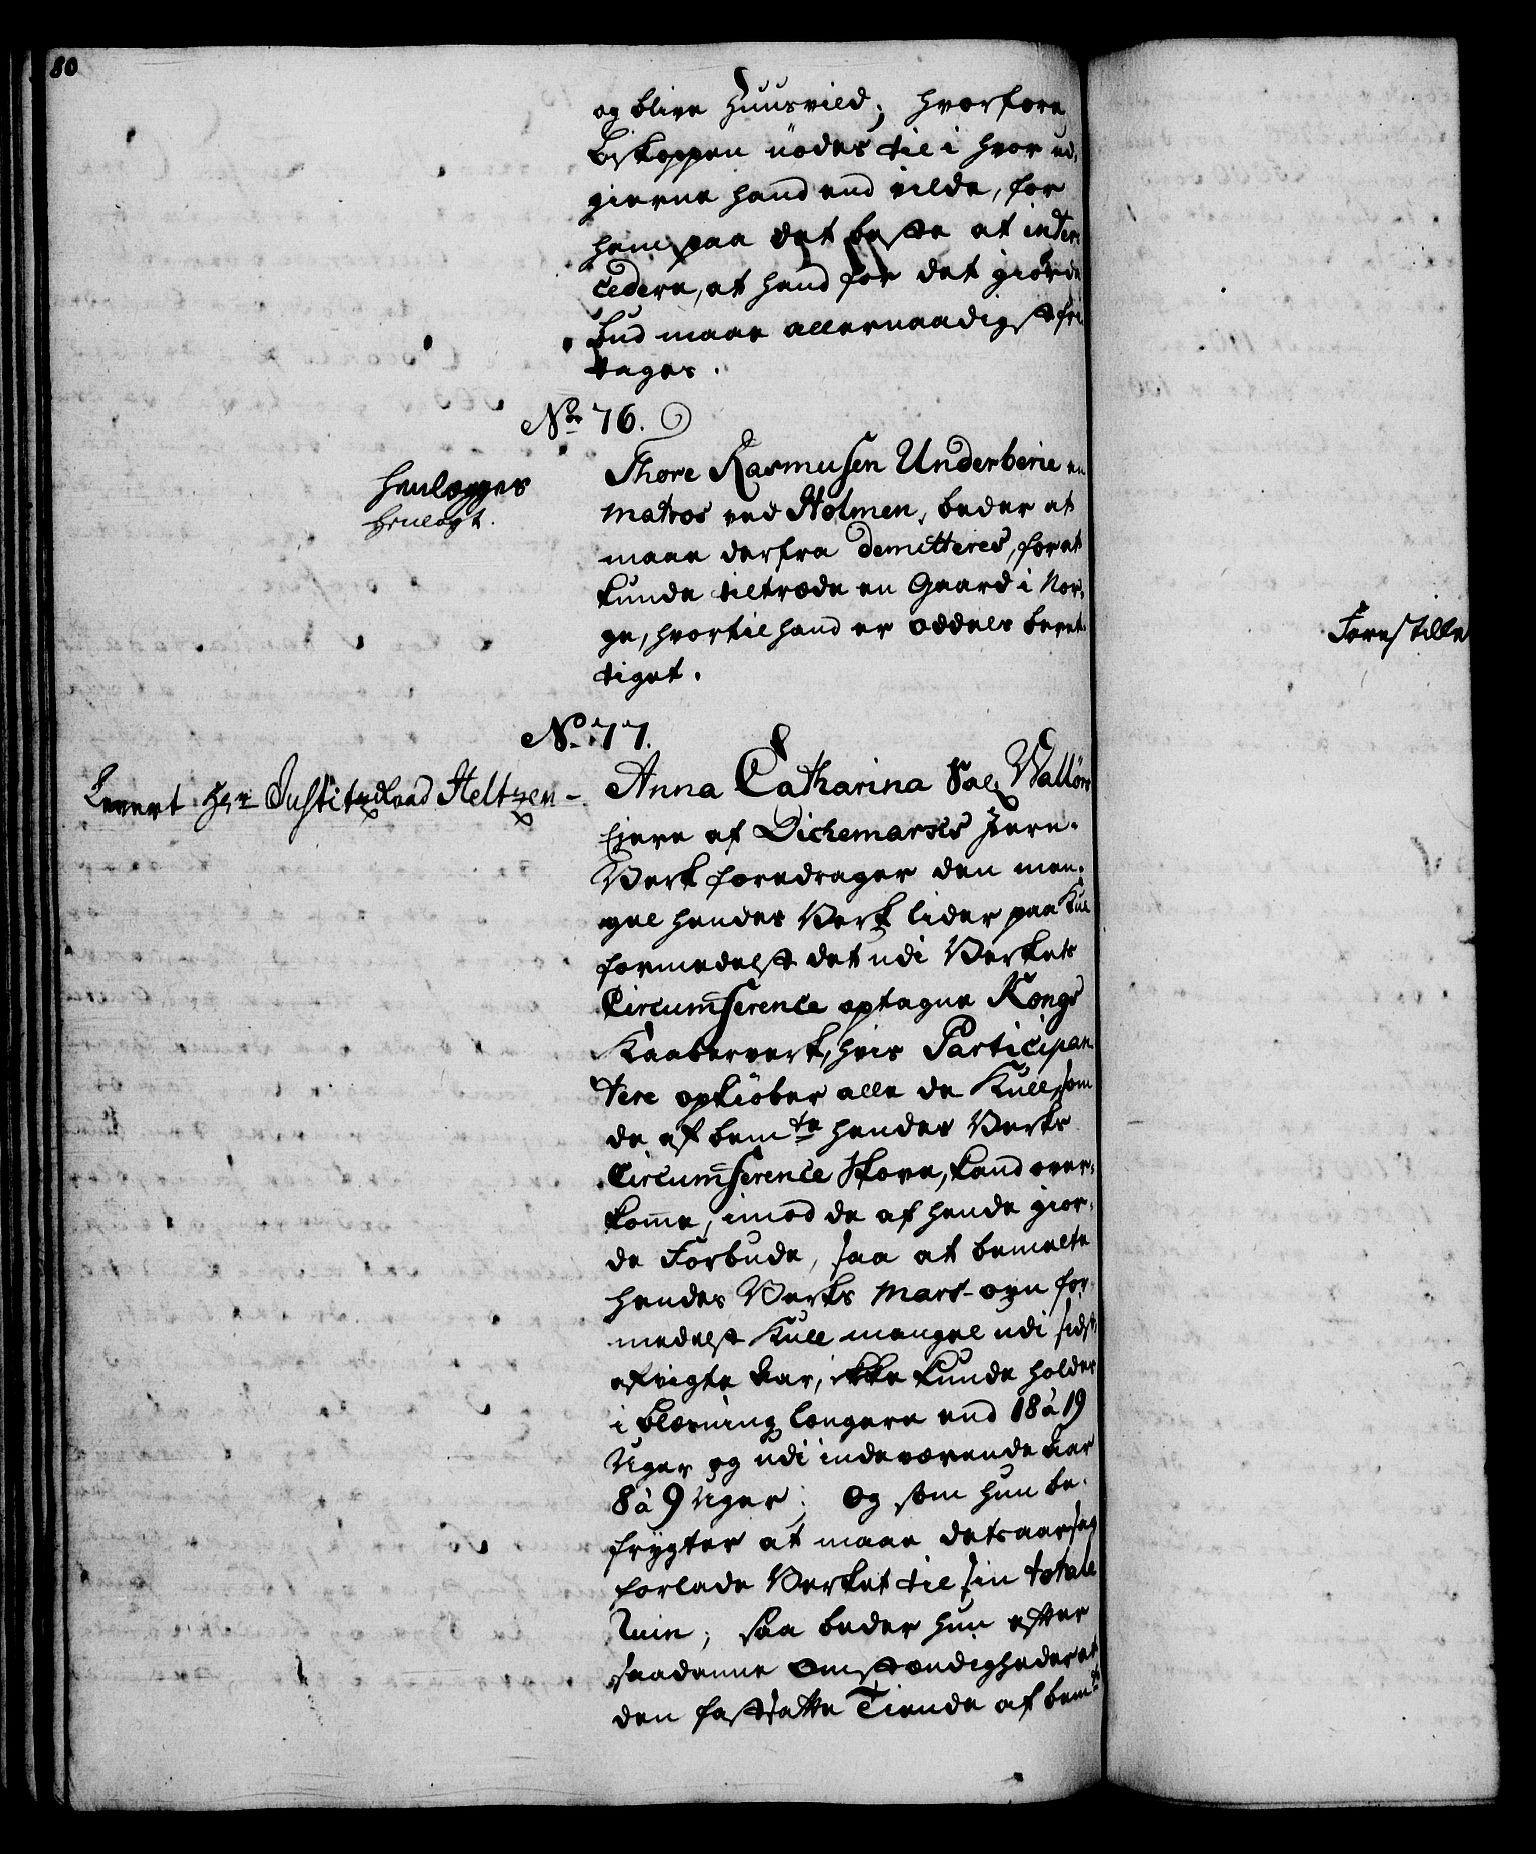 80
og blive Huusvild; hvorfore
Biskoppen nödes til i hvor u¬
gierne hand end vilde, for
ham paa det beste at inter¬
cedere, at hand for det giorde
Bud maae allernaadigst fri¬
tages.
No 76.
Henlægges
Henlagt.
Thore Rasmusen Underberie en
Matros ved Holmen, beder at
maae derfra demitteres, for at
kunde tiltræde en Gaard i Nor¬
ge, hvortil hand er oddels beret¬
tiget.
No 77.
Levert Hr Justitz Raad Heltzen -
Anna Catharina Sal Wallörs
Ejere af Dichemarks Jern¬
Verk foredrager den man¬
gel hendes Verk lider paa Kul
formedelst det udi Verkets
Circumference optagne Kongs
Kaaberverk, hvis Participan¬
tere opkiöber alle de Kull, som
de af bemte hendes Verks
Circumference Skove, kand over¬
komme, imod de af hende gior¬
de Forbude, saa at bemelte
hendes Verks Mars-ovn for¬
medelst Kull mangel udi sidst
afvigte Aar, ikke kunde holdes
i blæsning længere end 18 à 19
Uger og udi indeværende Aar
8 à 9 Uger; Og som hun be¬
frygter at maae detsaarsag
forlade Verket til sin totale
Ruin; saa beder hun efter
saadanne Omstændigheder at
den fastsatte Tiende af bemte
Forestilles